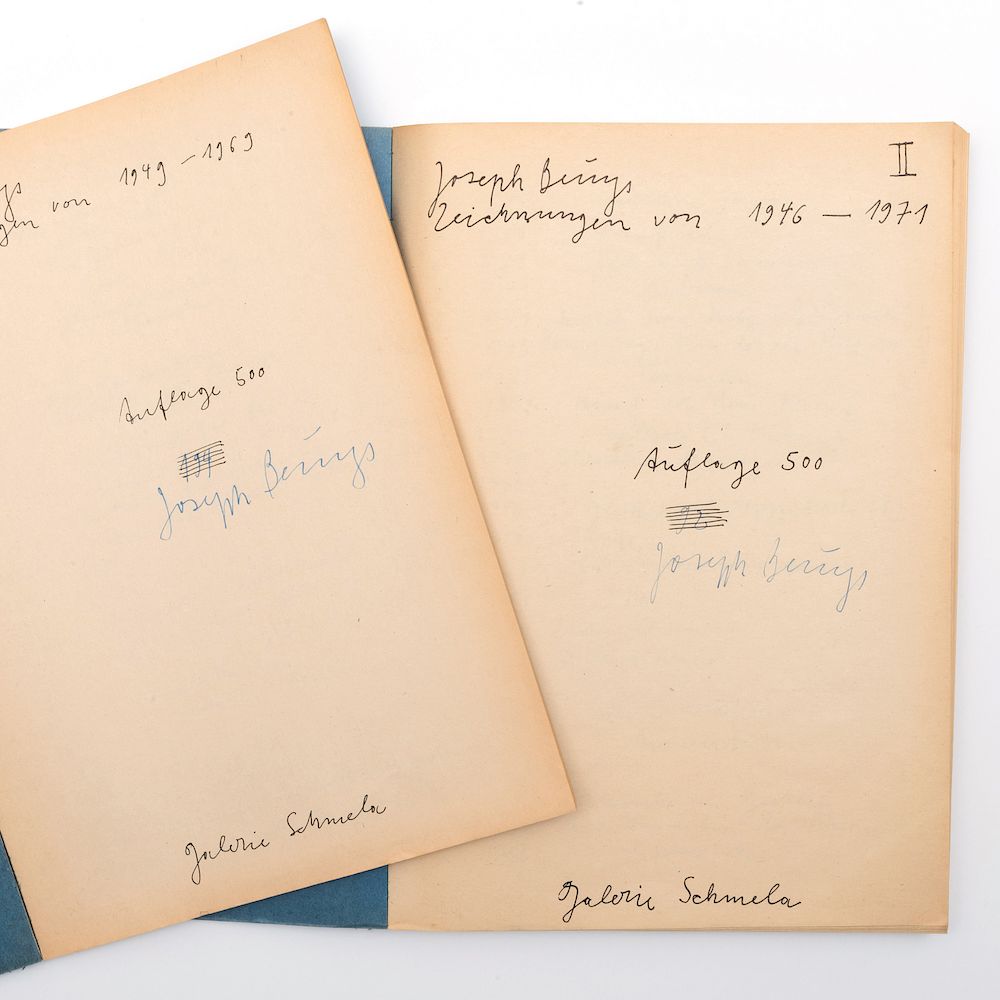 ys
gen von 1949 – 1969
Auflage 500
194
Joseph Beuys
Galerie Schmela
II
Joseph Beuys
Zeichnungen von 1946 – 1971
Auflage 500
92
Joseph Beuys
Galerie Schmela